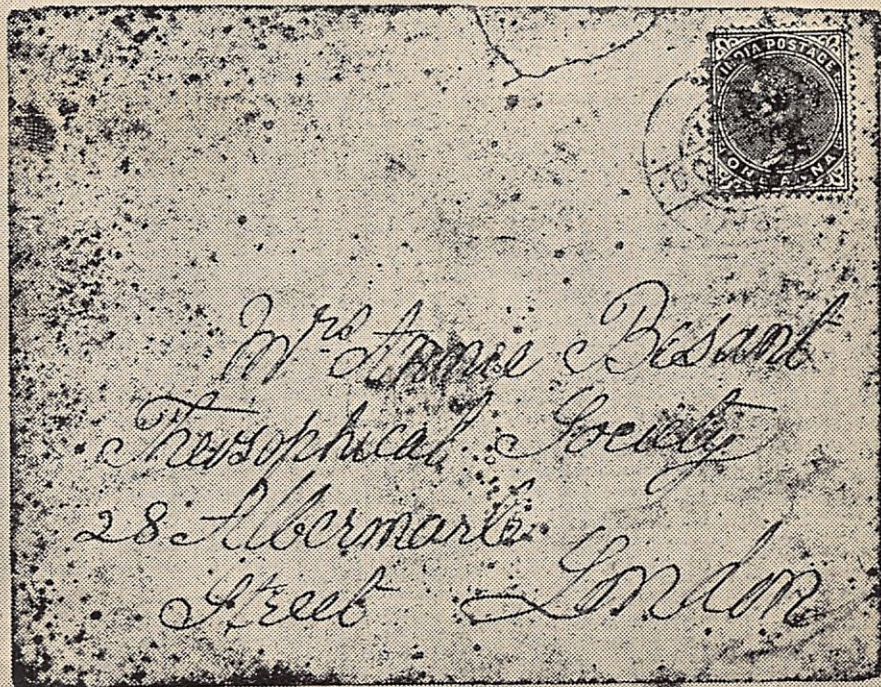 INDIA POSTAGE
ONE ANNA
Mrs Annie Besant
Theosophical Society
28 Albermarle
Street London